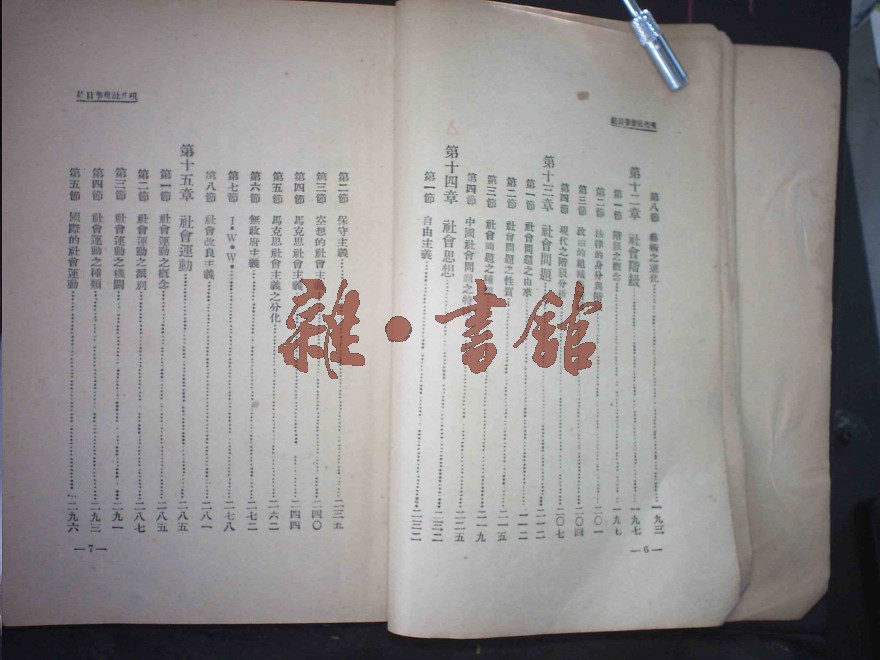 第八節 藝術之進化……一九三
第十二章 社會階級……一九七
第一節 階級之概念……一九七
第二節 法律的身分與階……二〇一
第三節 政治的組織……二〇四
第四節 現代之階級分析……二〇七
第十三章 社會問題……二一二
第一節 社會問題之由來……二一二
第二節 社會問題之性質……二一五
第三節 社會問題之……二一九
第四節 中國社會問題之特……二二五
第十四章 社會思想……二三二
第一節 自由主義……二三二
—6—
第二節 保守主義……二三五
第三節 空想的社會主義……二四〇
第四節 馬克思社會主義……二四四
第五節 馬克思社會主義之分化……二六二
第六節 無政府主義……二七二
第七節 I·W·W·……二七八
第八節 社會改良主義……二八一
第十五章 社會運動……二八五
第一節 社會運動之概念……二八五
第二節 社會運動之派別……二八七
第三節 社會運動之機關……二九一
第四節 社會運動之種類……二九三
第五節 國際的社會運動……二九六
—7—
雜·書館